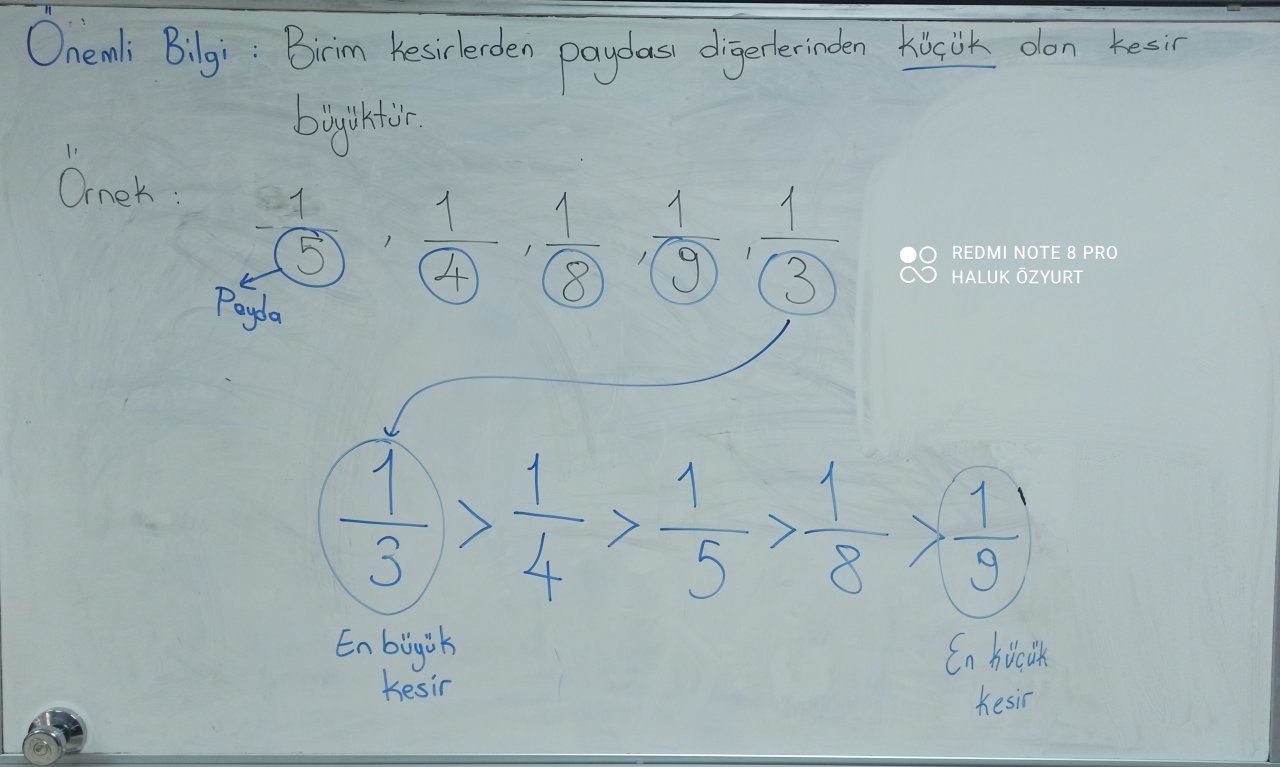 Önemli Bilgi : Birim kesirlerden paydası diğerlerinden küçük olan kesir
büyüktür.
Örnek :
1/5 , 1/4 , 1/8 , 1/9 , 1/3
Payda
REDMI NOTE 8 PRO
HALUK ÖZYURT
1/3 > 1/4 > 1/5 > 1/8 > 1/9
En büyük
kesir
En küçük
kesir